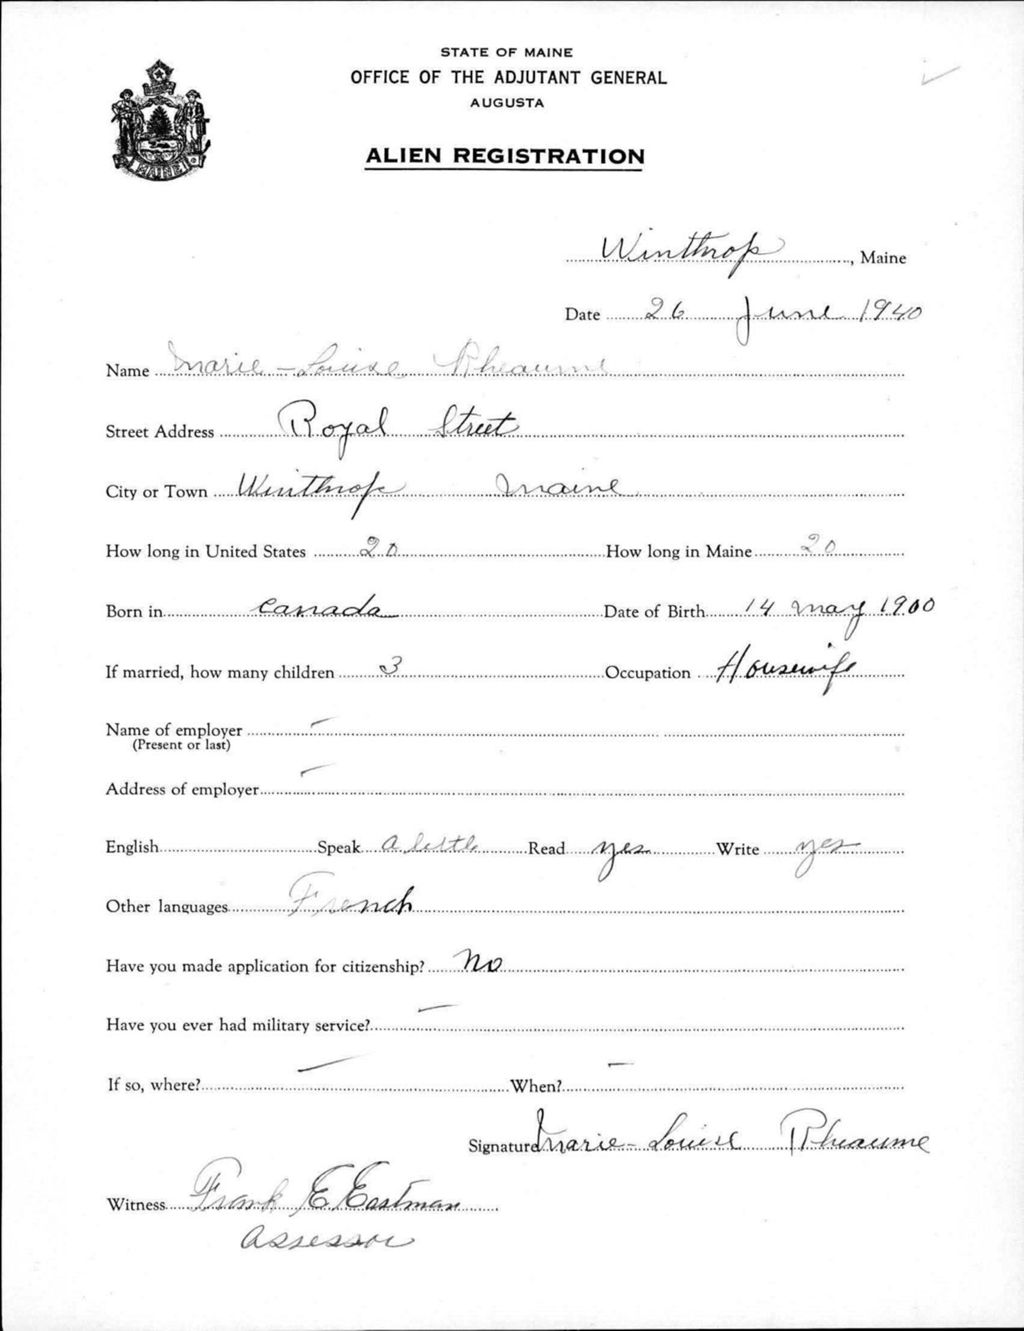 STATE OF MAINE
OFFICE OF THE ADJUTANT GENERAL
AUGUSTA
ALIEN REGISTRATION
MAINE
Winthrop, Maine
Date 26 June 1940
Name Marie-Louise Rheaume
Street Address Royal Street
City or Town Winthrop Maine
How long in United States 20 How long in Maine 20
Born in Canada Date of Birth 14 May 1900
If married, how many children 3 Occupation Housewife
Name of employer —
(Present or last)
Address of employer —
English Speak A little Read yes Write yes
Other languages French
Have you made application for citizenship? No
Have you ever had military service? —
If so, where? — When? —
Signature Marie-Louise Rheaume
Witness Frank E Eastman
Assessor